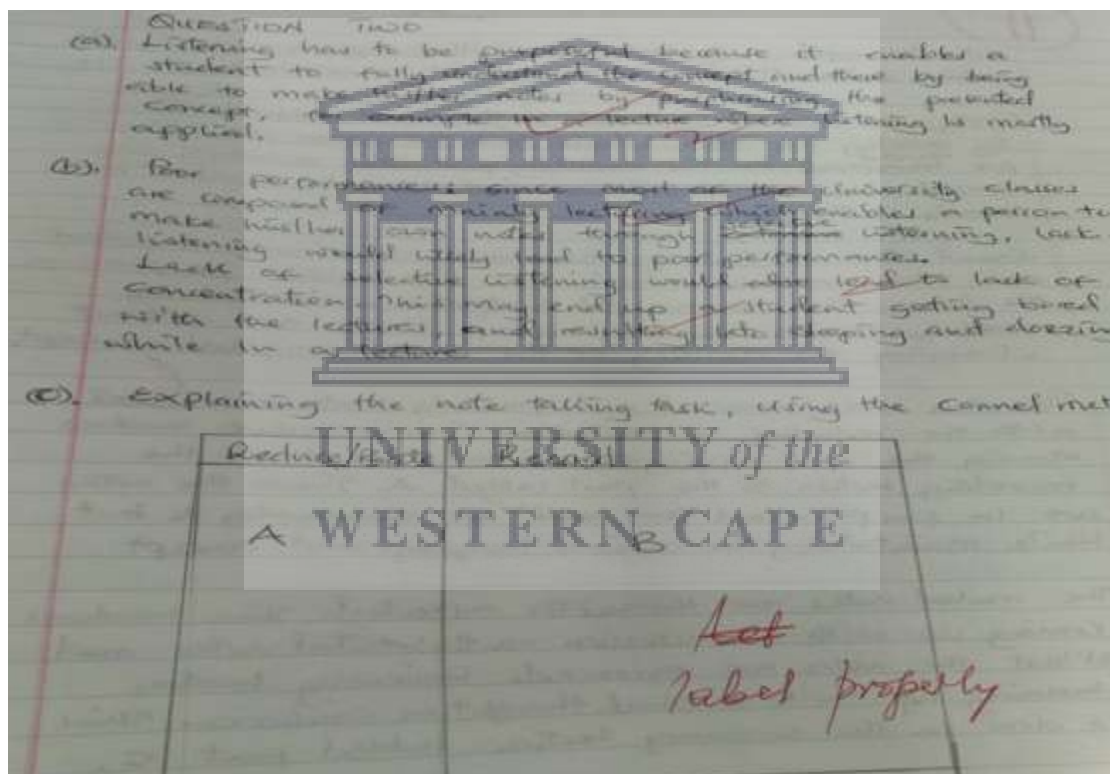 QUESTION TWO
(a). Listening has to be purposeful because it enables a
student to fully understand the concept and there by being
able to make his/her notes by paraphrasing the presented
concept, for example in a lecture where listening is mostly
applied.
(b). Poor performance: since most of the University classes
are composed of mainly lecturing which enables a person to
make his/her own notes through listening, lack
listening would lead to poor performances.
Lack of selective listening would also lead to lack of
concentration. This may end up a student getting bored
with the lectures, and resulting into sleeping and dozing
while in a lecture
(c). Explaining the note taking task, using the Connel met
Reduce Record
A B
UNIVERSITY of the
WESTERN CAPE
label properly